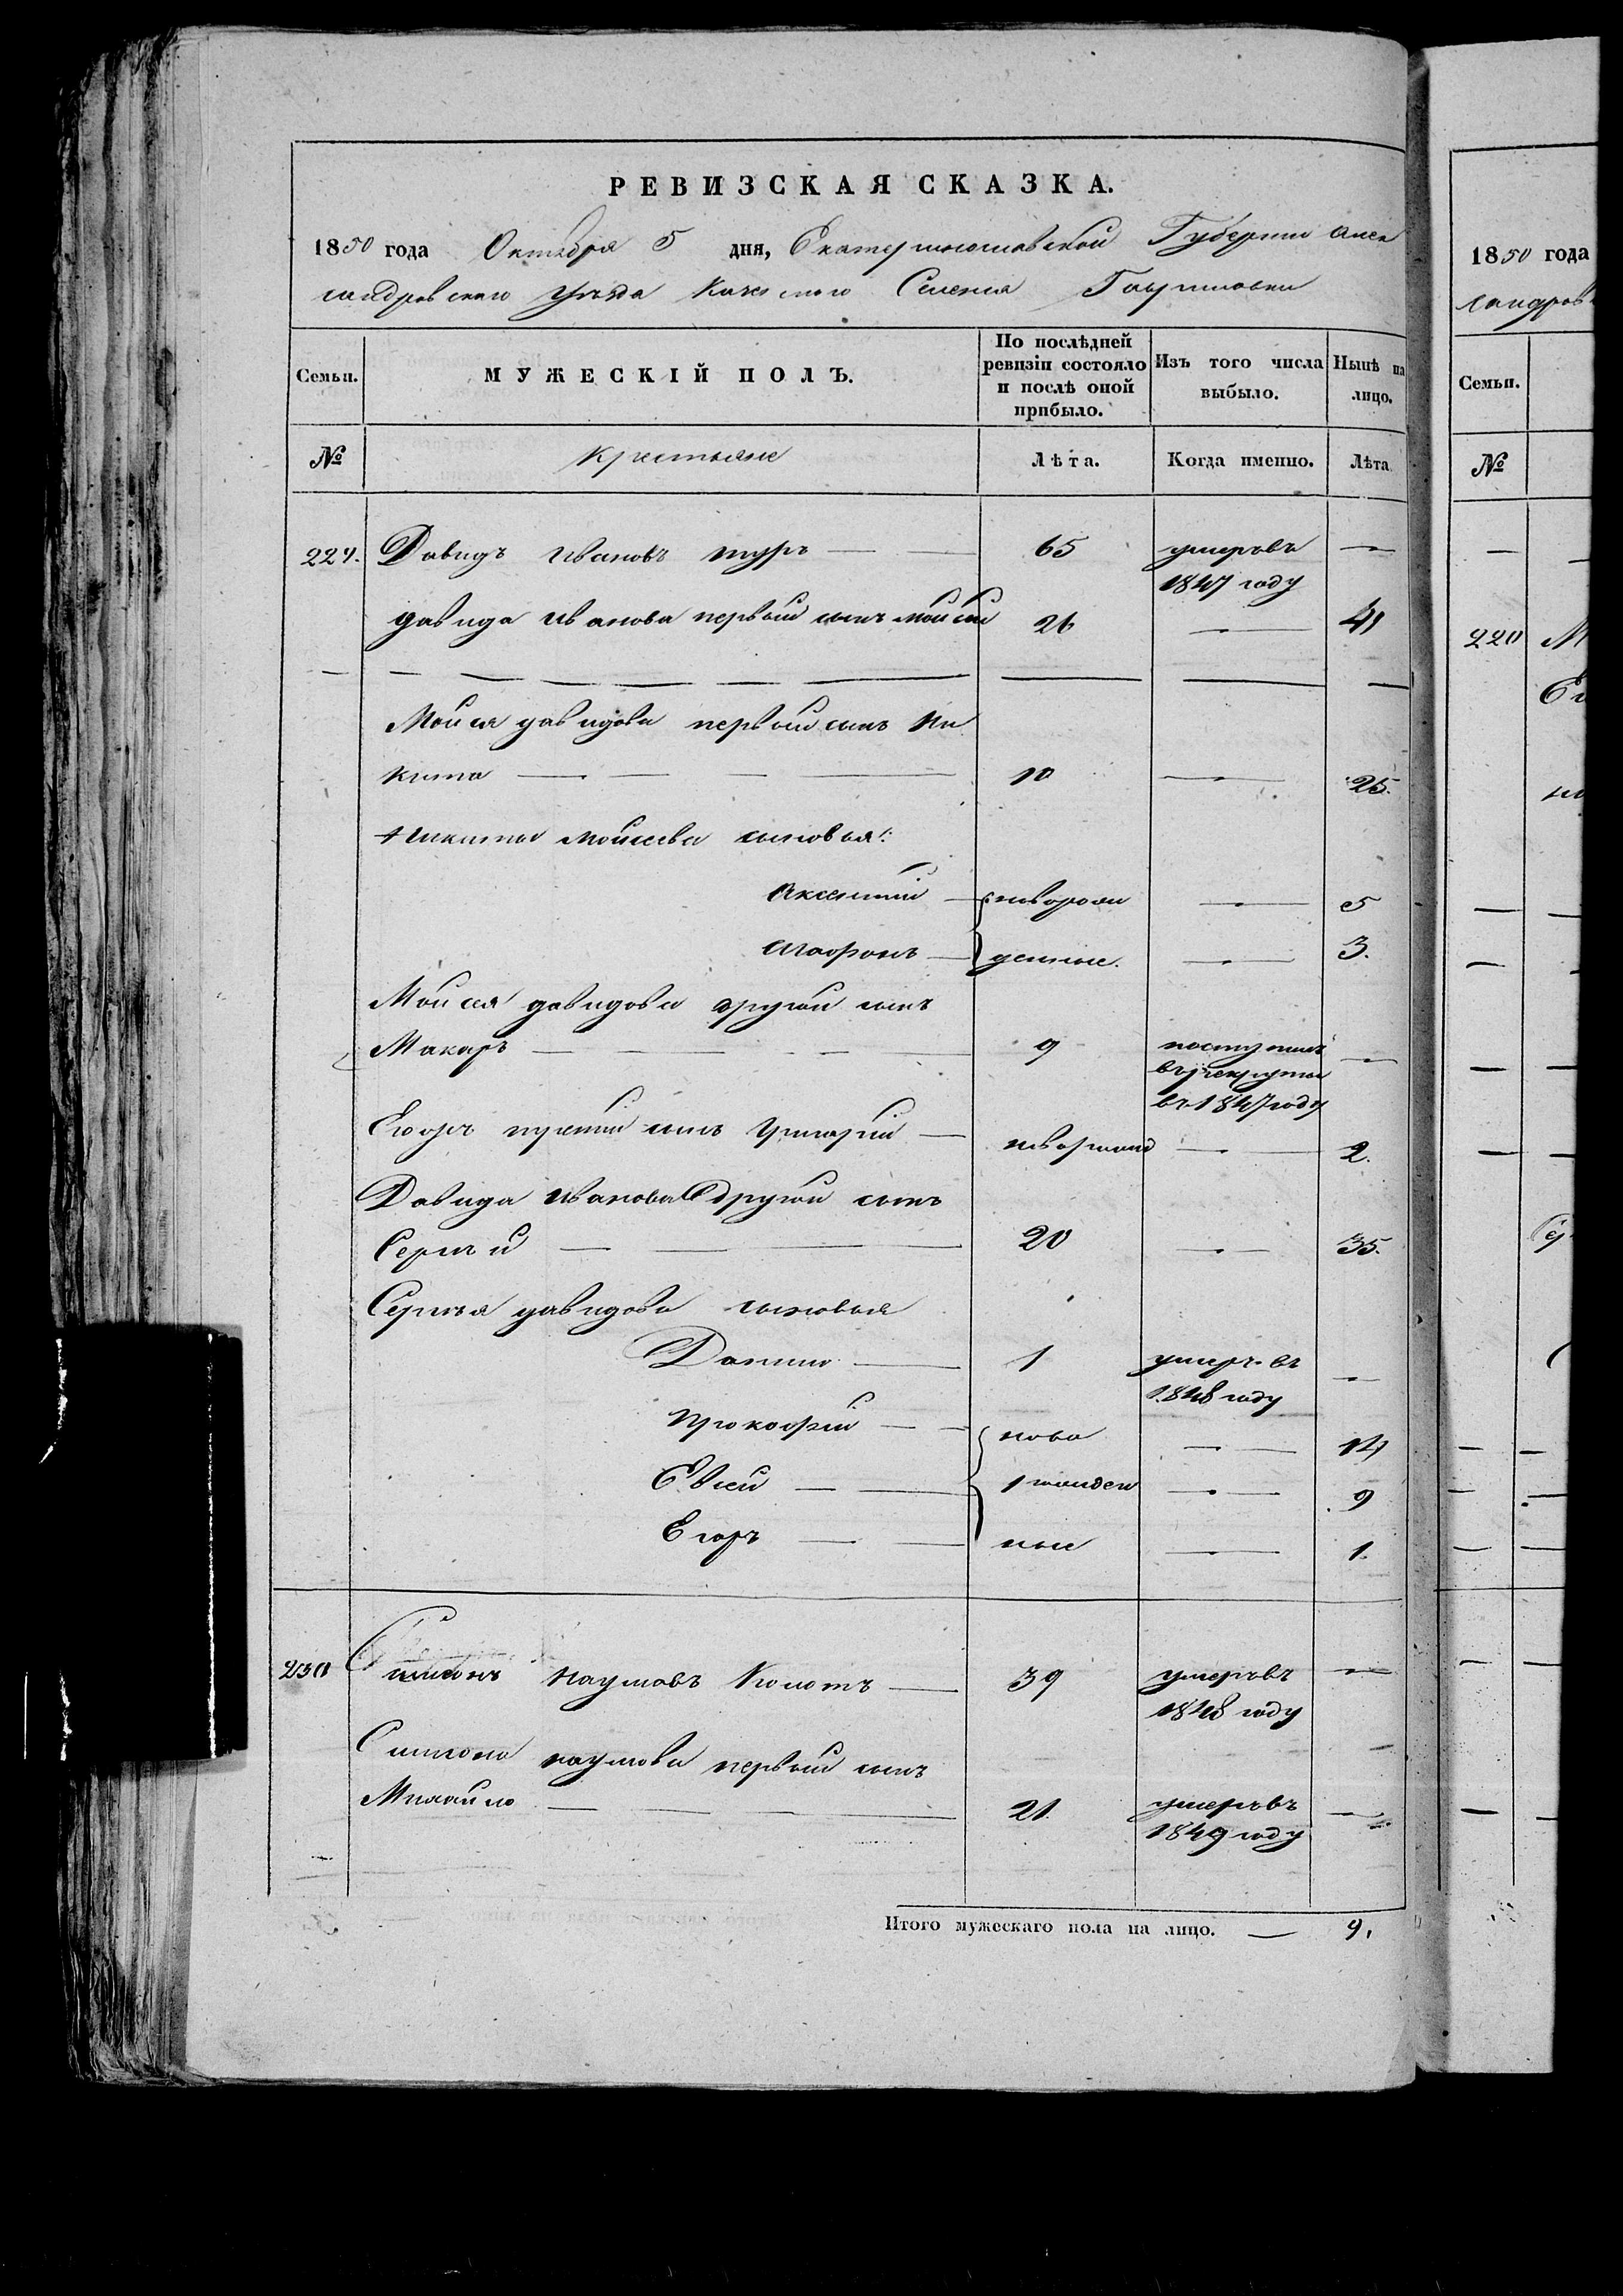 РЕВИЗСКАЯ СКАЗКА.
1850 года Октября 5 дня, Екатеринославской Губернии Алек
сандровскаго Уезда Казеннаго Селения Гавриловки
Семьи. МУЖЕСКІЙ ПОЛЪ. По послѣдней ревизіи состояло и послѣ оной прибыло. Изъ того числа выбыло. Нынѣ на лицо.
№ Крестьяне Лѣта. Когда именно. Лѣта
229. Давидъ Ивановъ туръ — 65 умеръ въ 1847 году —
Давида Иванова первый сынъ Мойсей 26 — 41
Мойсея Давидова первый сынъ Ни
кита — 10 — 25.
Никиты Мойсеева сыновья:
Аксентий — новорож — 5
Агафонъ — денные. — 3.
Мойсея Давидова другой сынъ
Макаръ — 9 поступилъ въ рекруты въ 1847 году —
Его третий сынъ Григорий — новорожд — 2.
Давида Иванова другой сынъ
Сергей — 20 — 35.
Сергея Давидова сыновья
Данило — 1 умеръ въ 1848 году —
Прокофий — ново — 14
Евсей — рожден — 9
Егоръ — ные — 1.
230 Симонъ Наумовъ 39 умеръ въ 1848 году —
Симона Наумова первый сынъ
Михайло — 21. умеръ въ 1849 году —
Итого мужескаго пола на лицо. — 9.
1850 года
сандров
Семьи.
№
220 М